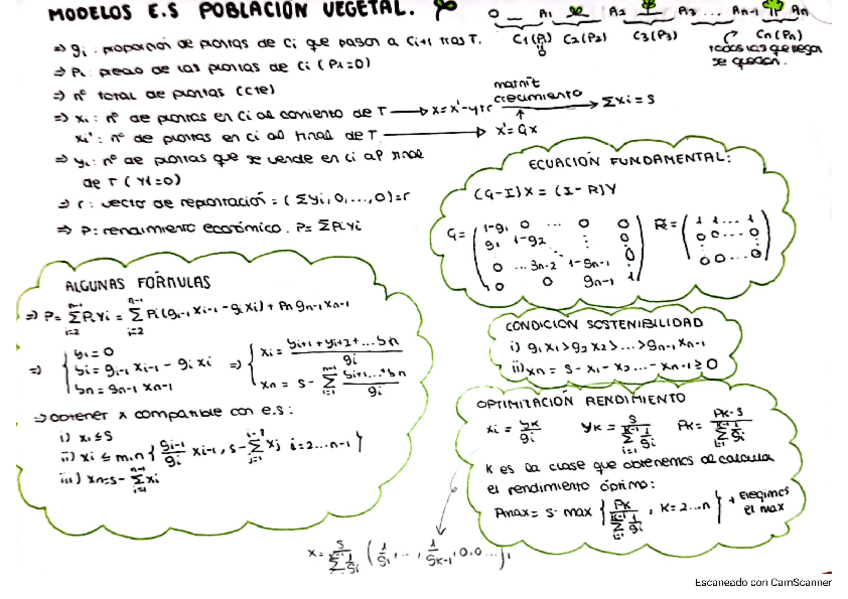 MODELOS E.S POBLACIÓN VEGETAL.
0 _ A1 A2 A3 ... An-1 An
C1(P1) C2(P2) C3(P3) Cn(Pn)
todas las que llegan
se quedan.
⇒ gi: proporción de plantas de Ci que pasan a Ci+1 tras T.
⇒ Pi: precio de las plantas de Ci (P1=0)
⇒ nº total de plantas (cte)
⇒ xi: nº de plantas en Ci al comienzo de T → x=x'-y+r
matriz
crecimiento → Σxi = S
xi': nº de plantas en Ci al final de T. → x'=Gx
⇒ yi: nº de plantas que se vende en Ci al final
de T (y1=0)
⇒ r: vector de replantación = (Σyi, 0, ..., 0)=r
⇒ P: rendimiento económico. P= ΣPiyi
ECUACIÓN FUNDAMENTAL:
(G-I)X = (I-R)Y
G= ( 1-g1 0 ... 0 0
g1 1-g2 ⋮ 0
0 ... gn-2 1-gn-1 0
0 0 gn-1 1 )
R= ( 1 1 ... 1
0 0 ... 0
0 0 ... 0 )
ALGUNAS FÓRMULAS
⇒ P= Σ(i=2, n) PiYi = Σ(i=2, n-1) Pi(gi-1 xi-1 - gi xi) + Pn gn-1 xn-1
⇒ { y1=0
yi = gi-1 xi-1 - gi xi
yn = gn-1 xn-1
⇒ { xi = (yi+1 + yi+2 + ... yn)/gi
xn = S - Σ(i=1, n-1) (yi+1 ... + yn)/gi
⇒ obtener x compatible con e.s:
i) x1 ≤ S
ii) xi ≤ min { gi-1/gi xi-1, S - Σ(j=1, i-1) xj i=2...n-1 }
iii) xn = S - Σ(i=1, n-1) xi
CONDICION SOSTENIBILIDAD
i) g1x1 > g2x2 > ... > gn-1 xn-1
ii) xn = S - x1 - x2 ... - xn-1 ≥ 0
OPTIMIZACIÓN RENDIMIENTO
xi = yk/gi yk = S/Σ(i=1, k-1) 1/gi Pk = Pk·S/Σ(i=1, k-1) 1/gi
K es la clase que obtenemos al calcular
el rendimiento óptimo:
Pmax = S· max { Pk/Σ(i=1, k-1) 1/gi, K=2...n } + elegimos
el max
x = S/Σ(i=1, k-1) 1/gi (1/g1, ..., 1/gk-1, 0, 0 ...)
Escaneado con CamScanner